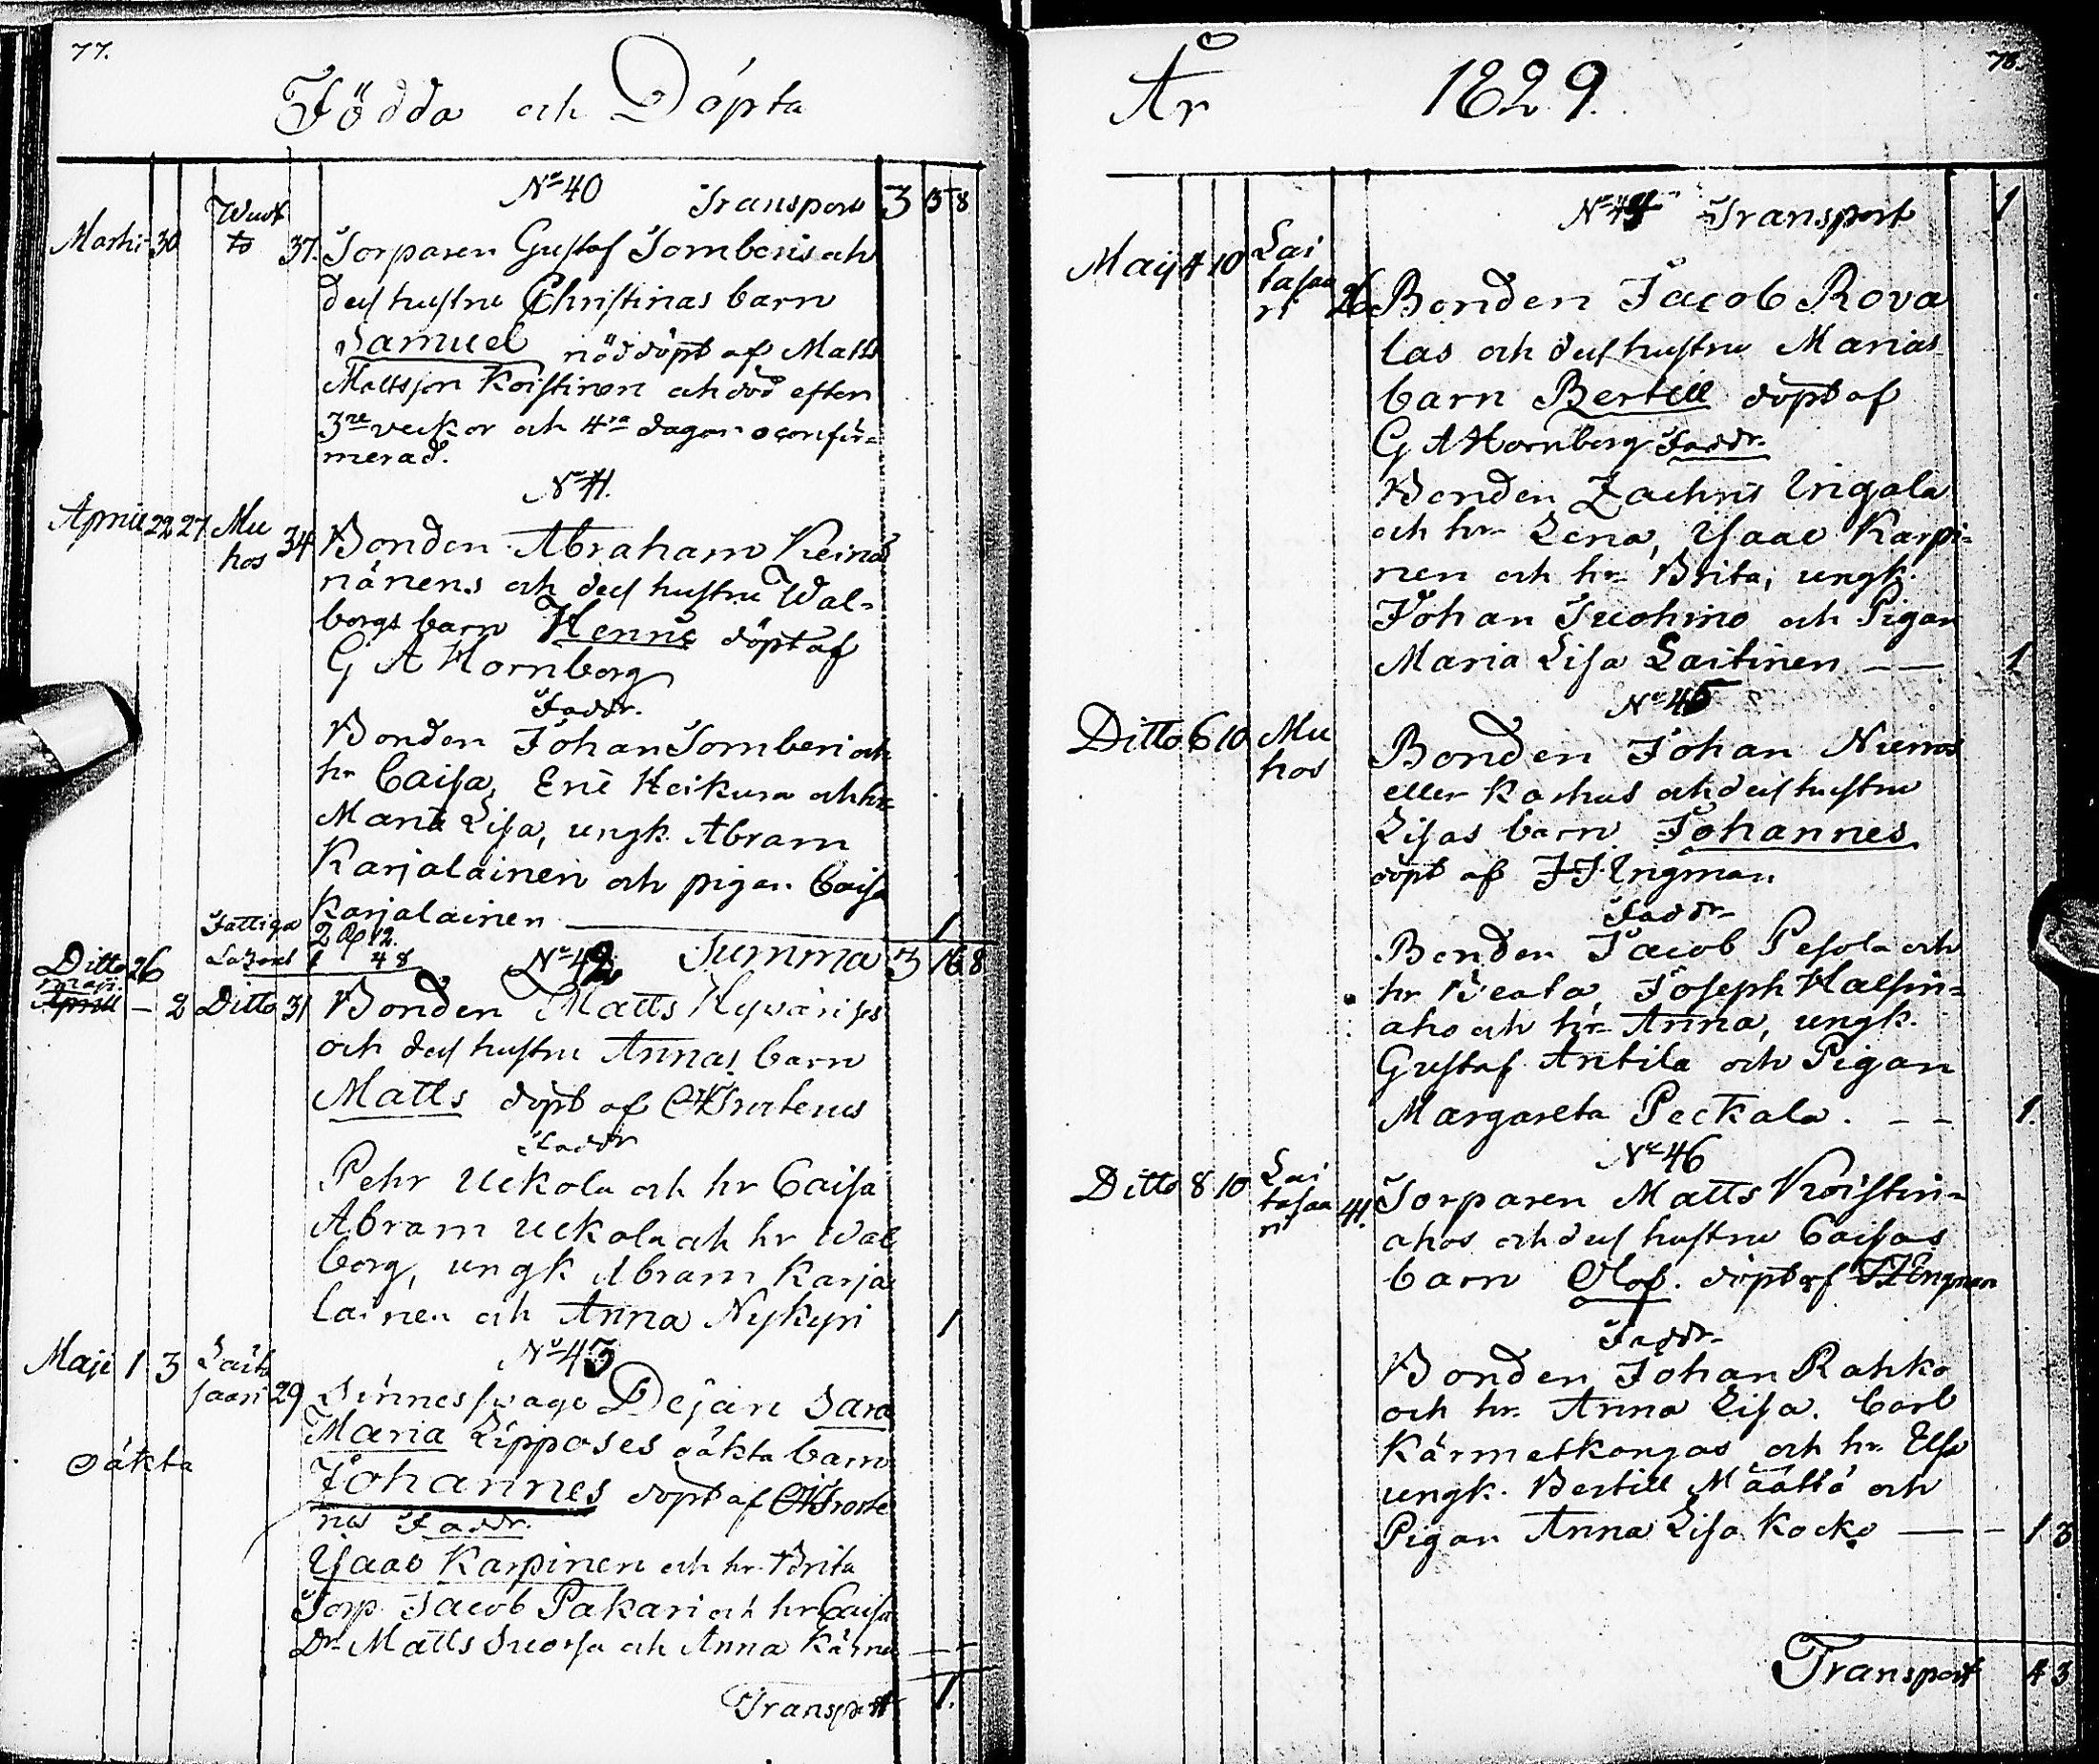 77.
Födda och Döpta
Nº 40 Transport 3 15 8
Martii 30 Wuot
to 37. Torparen Gustaf Tornberis och
dess hustru Christinas barn
Samuel nöddöpt af Matts
Mattsson Koistinen och död efter
3ne veckor och 4ra dagar oconfir=
merad.
Nº 41.
April 22 27 Mu
hos 34 Bonden Abraham Keinä
nänens och dess hustru Wal=
borgs barn Henric döpt af
G A Hornborg
Faddr.
Bonden Johan Tornberi och
hr Caisa, Eric Heikura och hr
Maria Lisa, ungk. Abram
Karjalainen och pigan Caisa
Karjalainen 1
Fattiga 2 12.
Lazaret 1 48
Nº 42 Summa 3 16 8
Ditto 26
Maji
April — 2 Ditto 31 Bonden Matts Hyvärises
och dess hustru Annas barn
Matts döpt af
Faddr
Pehr Uckola och hr Caisa
Abram Uckola och hr Wal
borg, ungk Abram Karja
lainen och Anna Nykyri 1
Nº 43
Maji 1 3 Laita
saari 29 Sinnessvage Dejan Sara
Maria Lipposes oäkta barn
oäkta
Johannes döpt af
Faddr.
Isaac Karpinen och hr Brita
Torp. Jacob Pakari och hr Caisa
Dr Matts Suorsa och Anna Kärnä — —
Transport 1.
78.
År 1829.
Nº 44 Transport 1
Maij 4 10 Lai
tasaa
ri 26 Bonden Jacob Rova
las och dess hustru Marias
barn Bertill döpt af
G A Hornborg Faddr.
Bonden Zachris Ingala
och hr Lena, Isaac Karpi=
nen och hr Brita, ungk.
Johan Tuohino och Pigan
Maria Lisa Laitinen — — 1
Nº 45
Ditto 6 10 Mu
hos Bonden Johan
eller Karhus och dess hustru
Lisas barn Johannes
döpt af J J Ingman
Faddr
Bonden Jacob Pesola och
hr Beata, Joseph Halsin=
aho och hr Anna, ungk.
Gustaf Antila och Pigan
Margareta Peckala. — — 1.
Nº 46
Ditto 8 10 Lai
tasaa
ri 41. Torparen Matts Koistin=
ahos och dess hustru Caisas
barn Olof. döpt af J J Ingman
Faddr.
Bonden Johan Rahko
och hr. Anna Lisa. Carl
Kärmetkangas och hr. Elsa
ungk. Bertill Määttä och
Pigan Anna Lisa Kocko — — 1 3
Transport 4 3